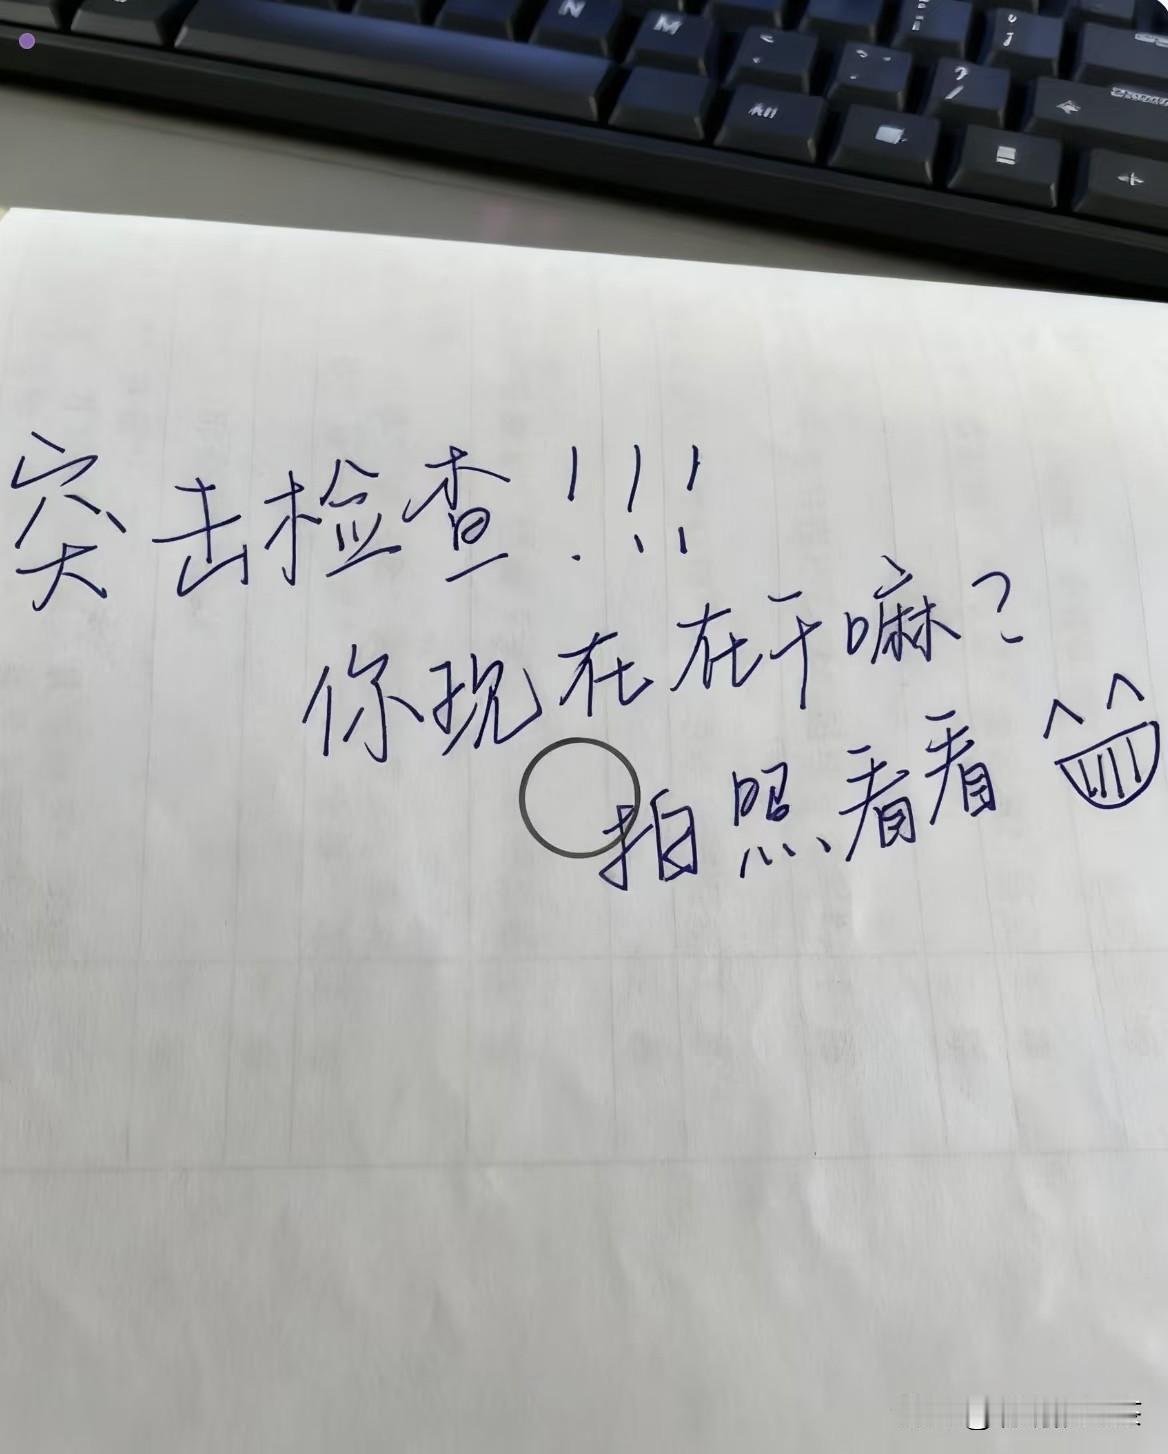 N M
Alt
突击检查!!!
你现在在干嘛?
拍照看看